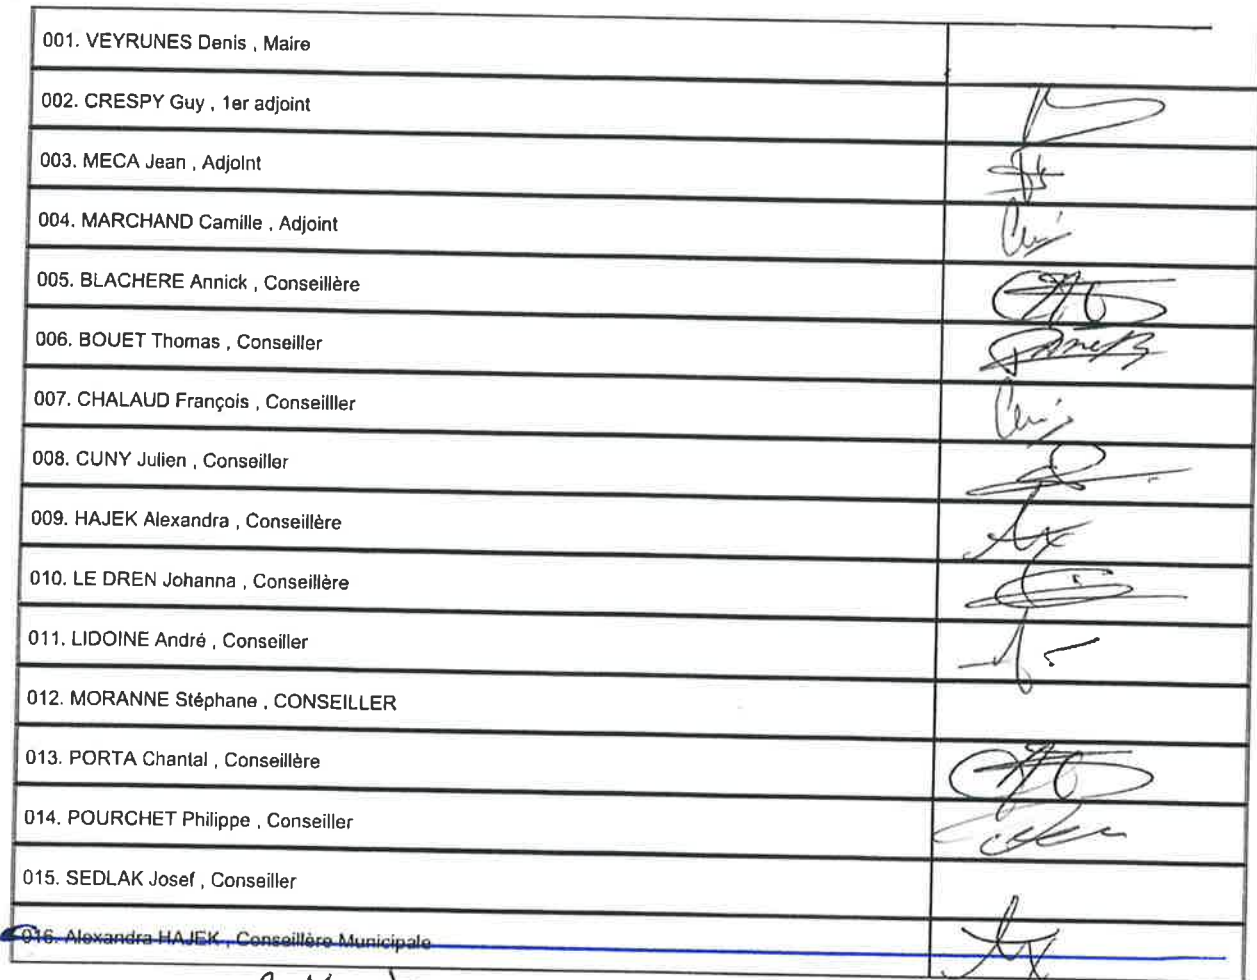 001. VEYRUNES Denis , Maire
002. CRESPY Guy , 1er adjoint
003. MECA Jean , Adjoint
004. MARCHAND Camille , Adjoint
005. BLACHERE Annick , Conseillère
006. BOUET Thomas , Conseiller
007. CHALAUD François , Conseilller
008. CUNY Julien , Conseiller
009. HAJEK Alexandra , Conseillère
010. LE DREN Johanna , Conseillère
011. LIDOINE André , Conseiller
012. MORANNE Stéphane , CONSEILLER
013. PORTA Chantal , Conseillère
014. POURCHET Philippe , Conseiller
015. SEDLAK Josef , Conseiller
016. Alexandra HAJEK , Conseillère Municipale